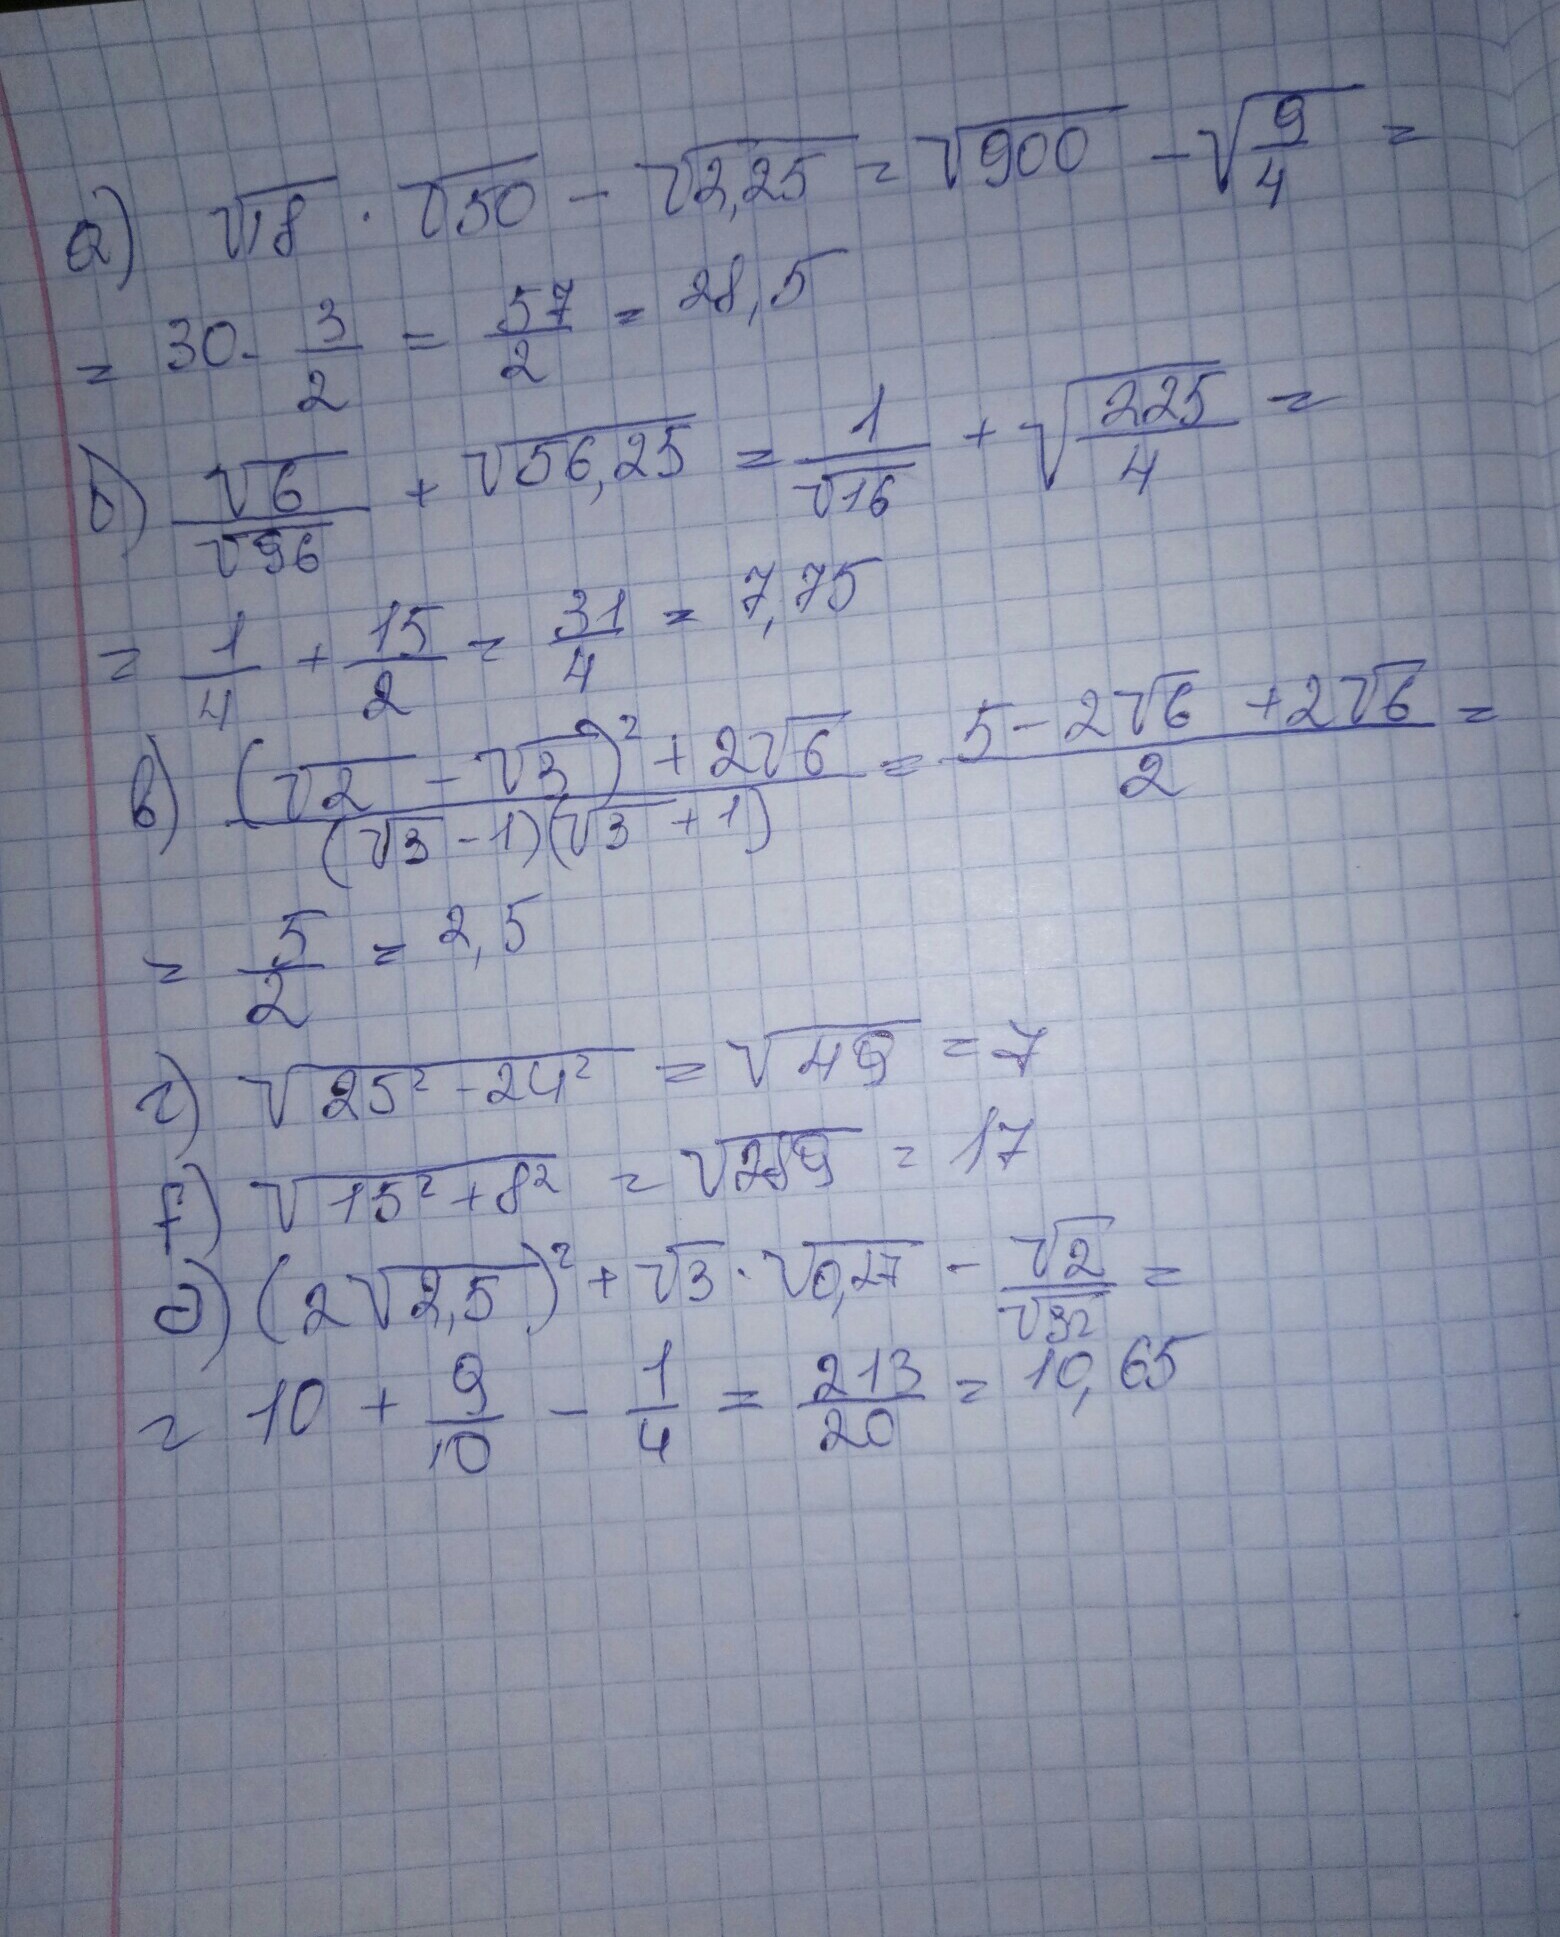 а) √18 · √50 − √2,25 = √900 − √(9/4) =
= 30 - 3/2 = 57/2 = 28,5
б) √6/√96 + √56,25 = 1/√16 + √(225/4) =
= 1/4 + 15/2 = 31/4 = 7,75
в) ((√2 − √3)² + 2√6)/((√3 − 1)(√3 + 1)) = (5 − 2√6 + 2√6)/2 =
= 5/2 = 2,5
г) √(25² − 24²) = √49 = 7
f) √(15² + 8²) = √289 = 17
е) (2√2,5)² + √3 · √0,27 − √2/√32 =
= 10 + 9/10 − 1/4 = 213/20 = 10,65